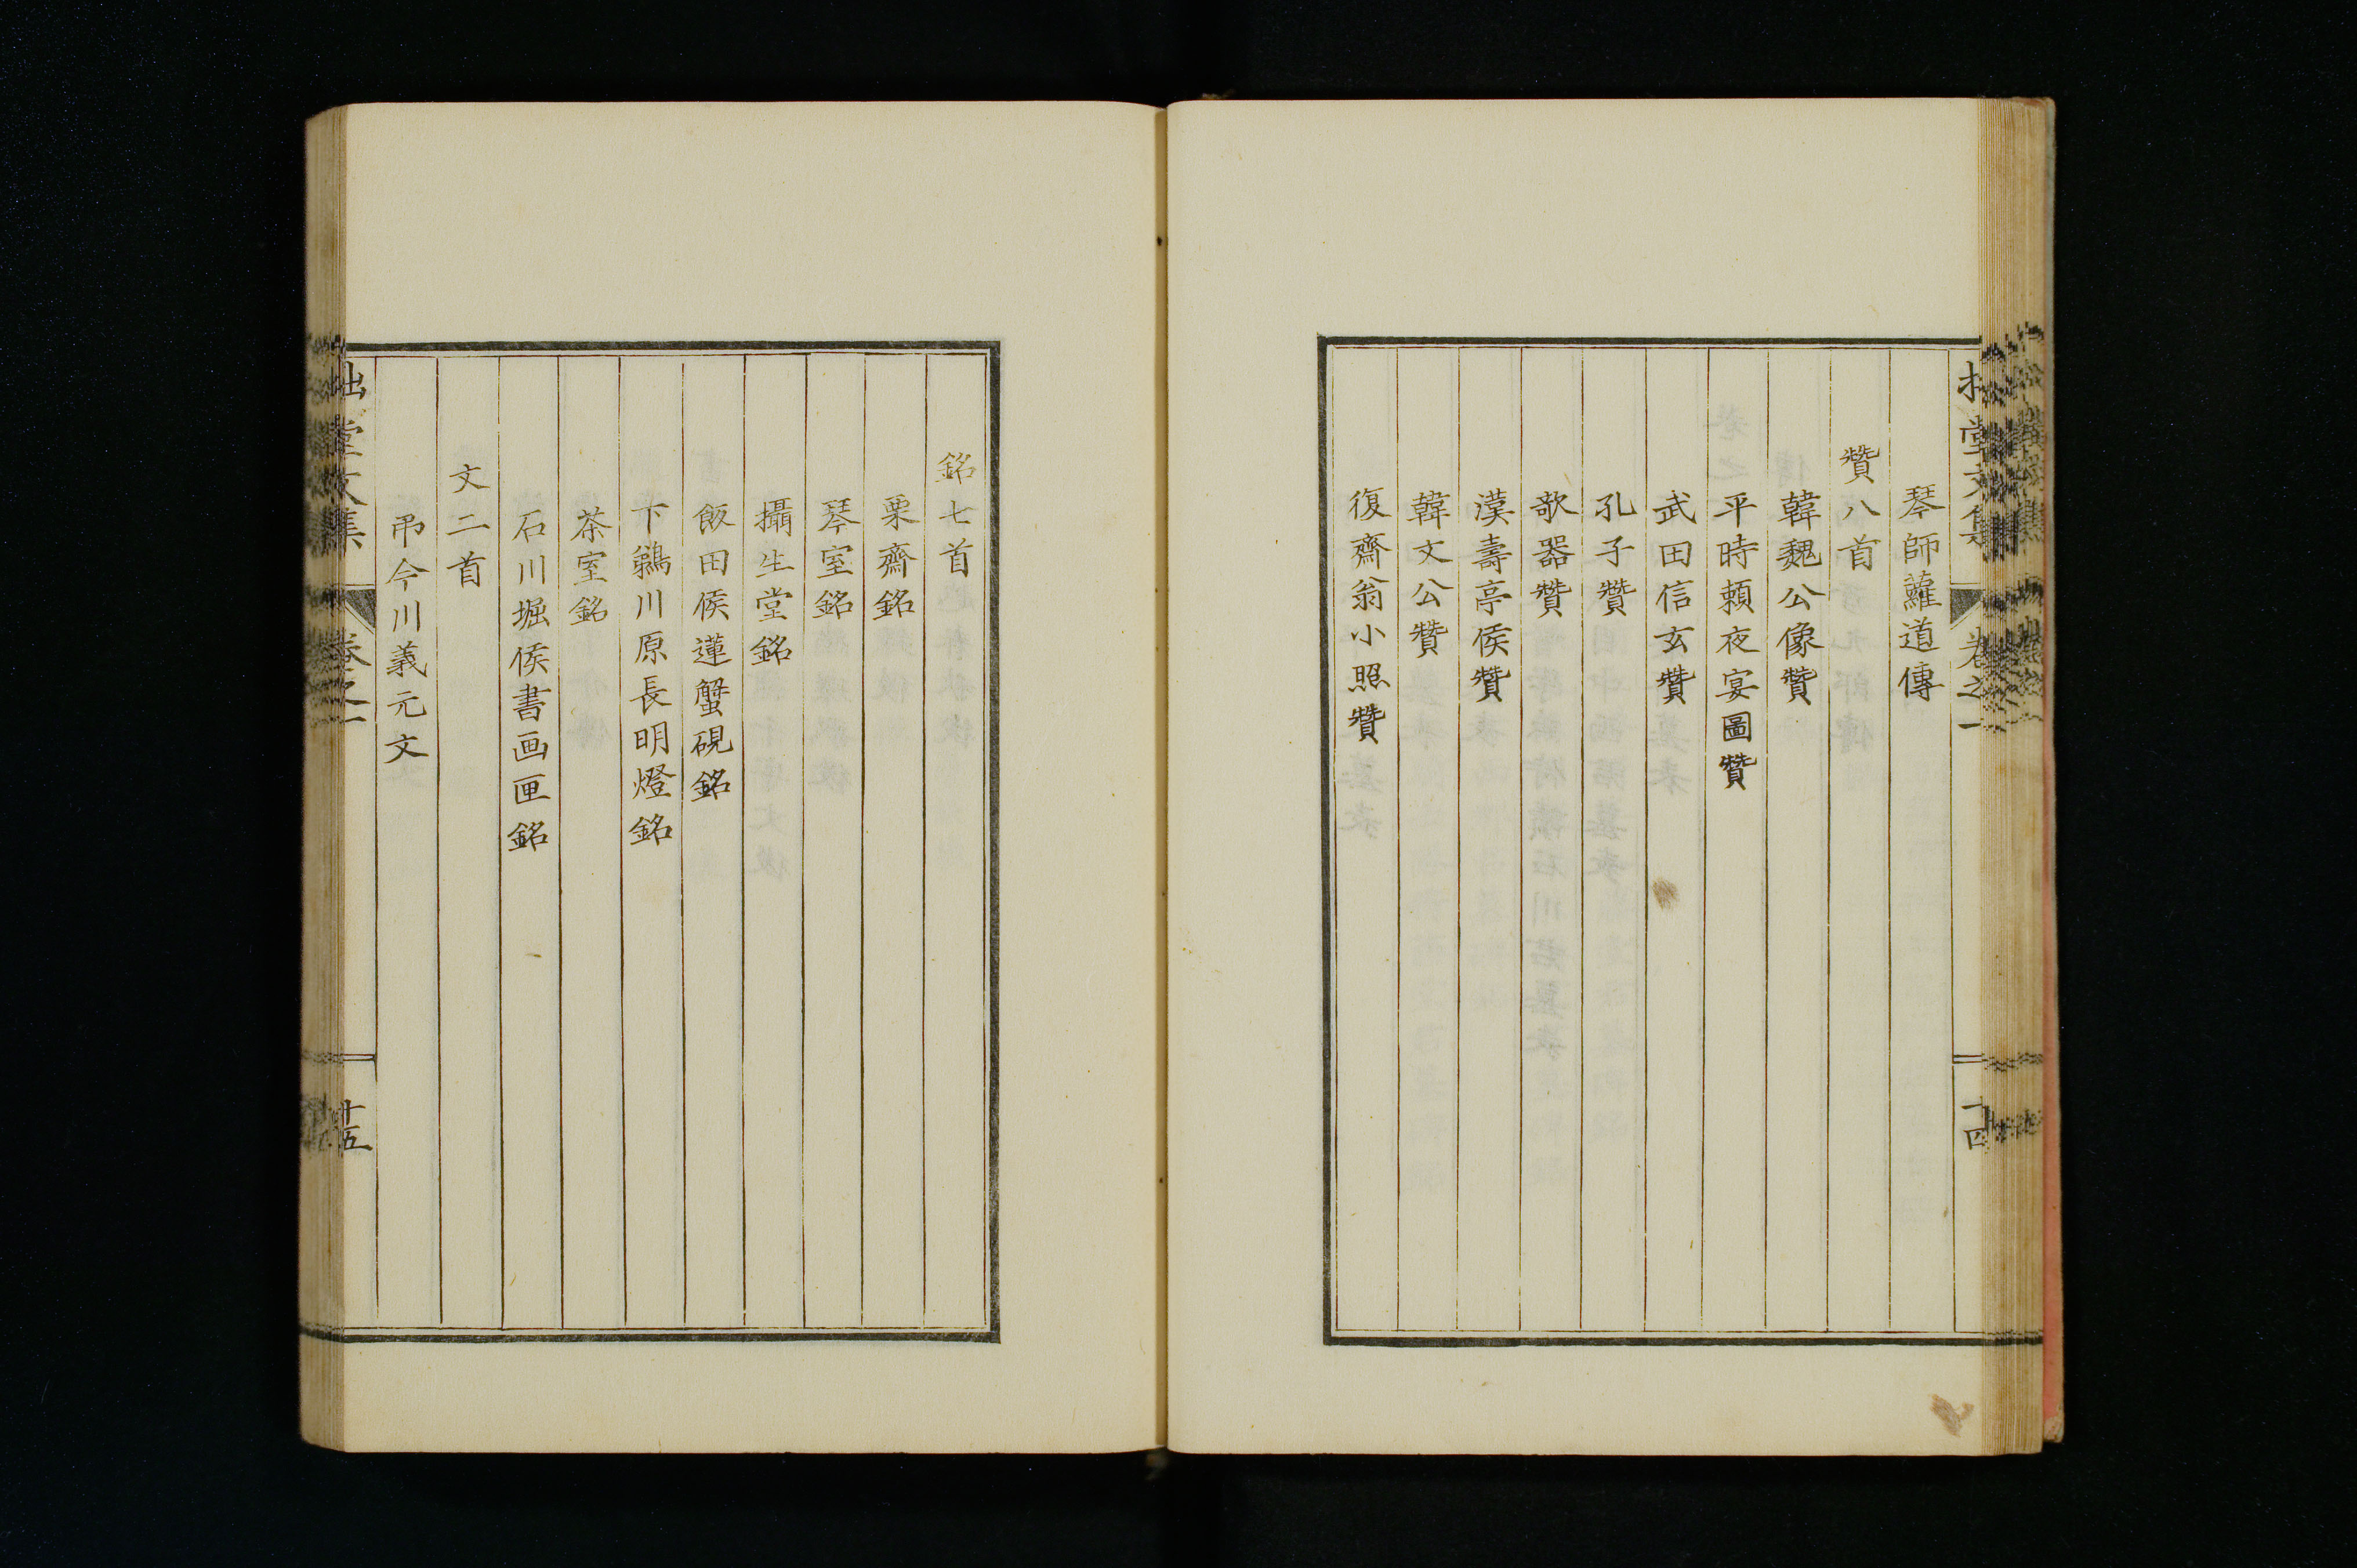 拙堂文集 卷之一 十四
琴師蘿道傳
贊八首
韓魏公像贊
平時頼夜宴圖贊
武田信玄贊
孔子贊
欹器贊
漢壽亭侯贊
韓文公贊
復齋翁小照贊
銘七首
栗齋銘
琴室銘
攝生堂銘
飯田侯蓮蟹硯銘
下鶲川原長明燈銘
茶室銘
石川堀侯書画匣銘
文二首
弔今川義元文
拙堂文集 卷之一 十五